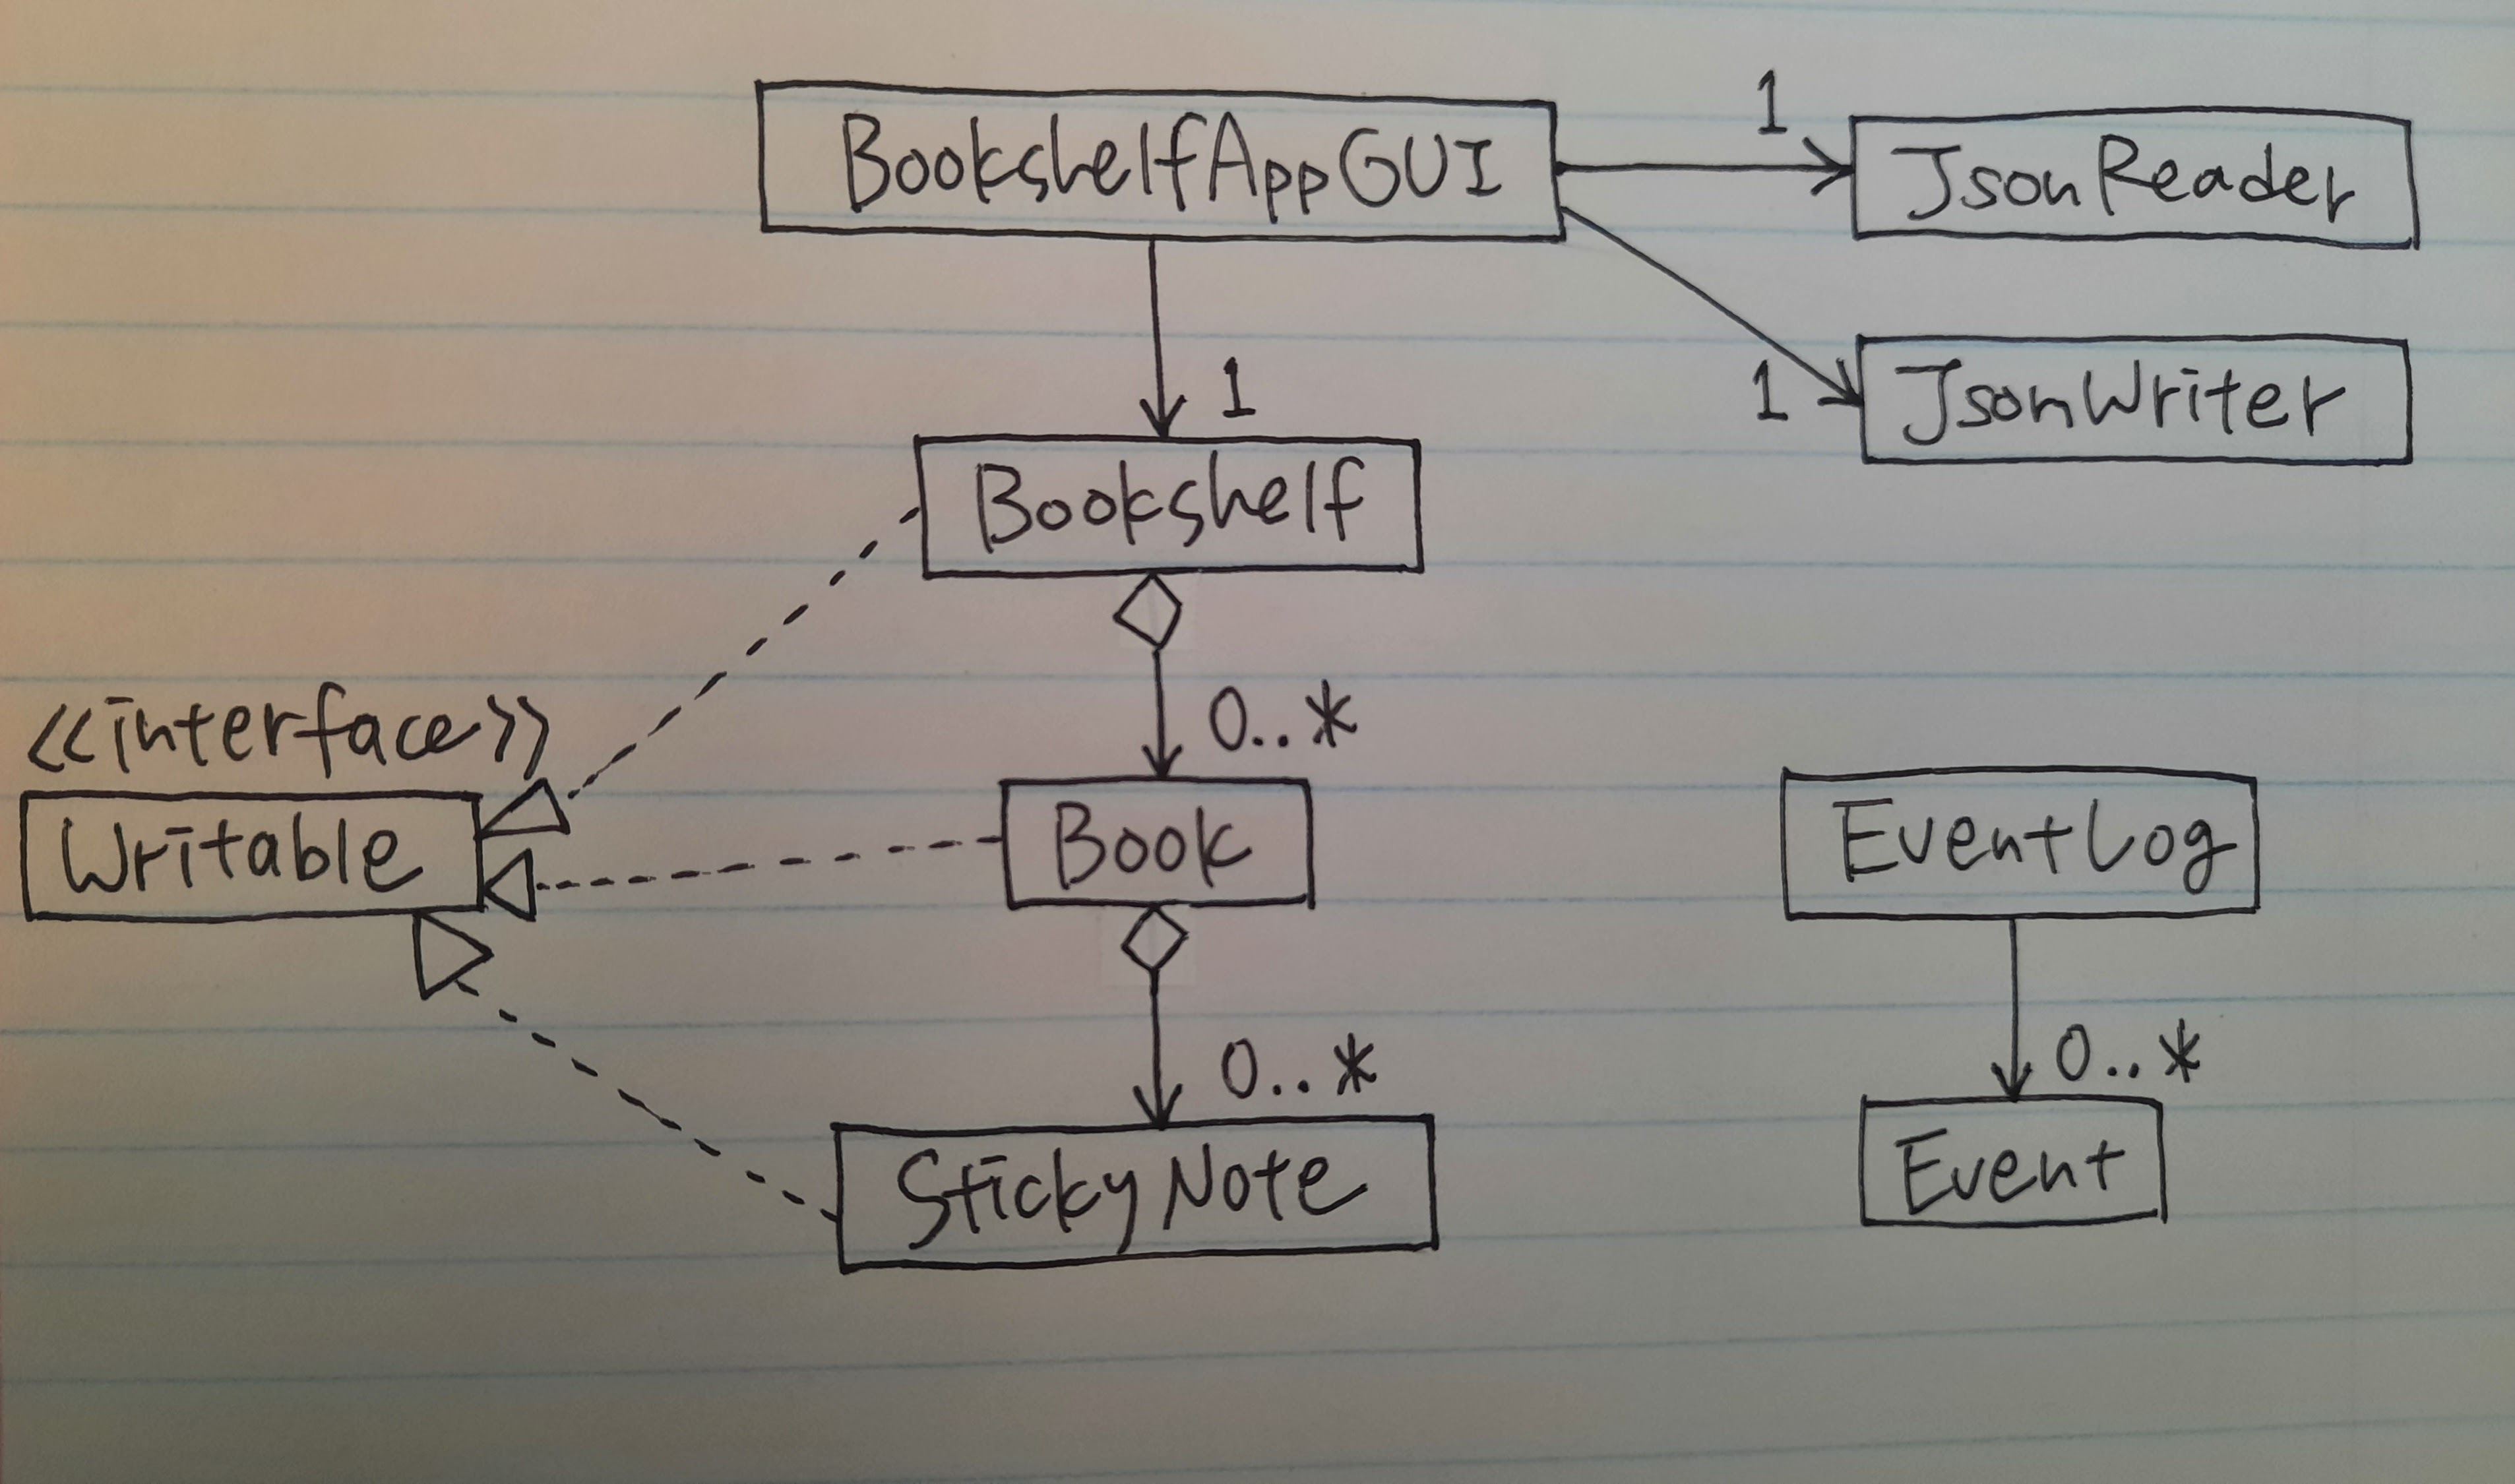 BookshelfAppGUI
1
JsonReader
1
JsonWriter
1
Bookshelf
0..*
<<interface>>
Writable
Book
EventLog
0..*
0..*
StickyNote
Event